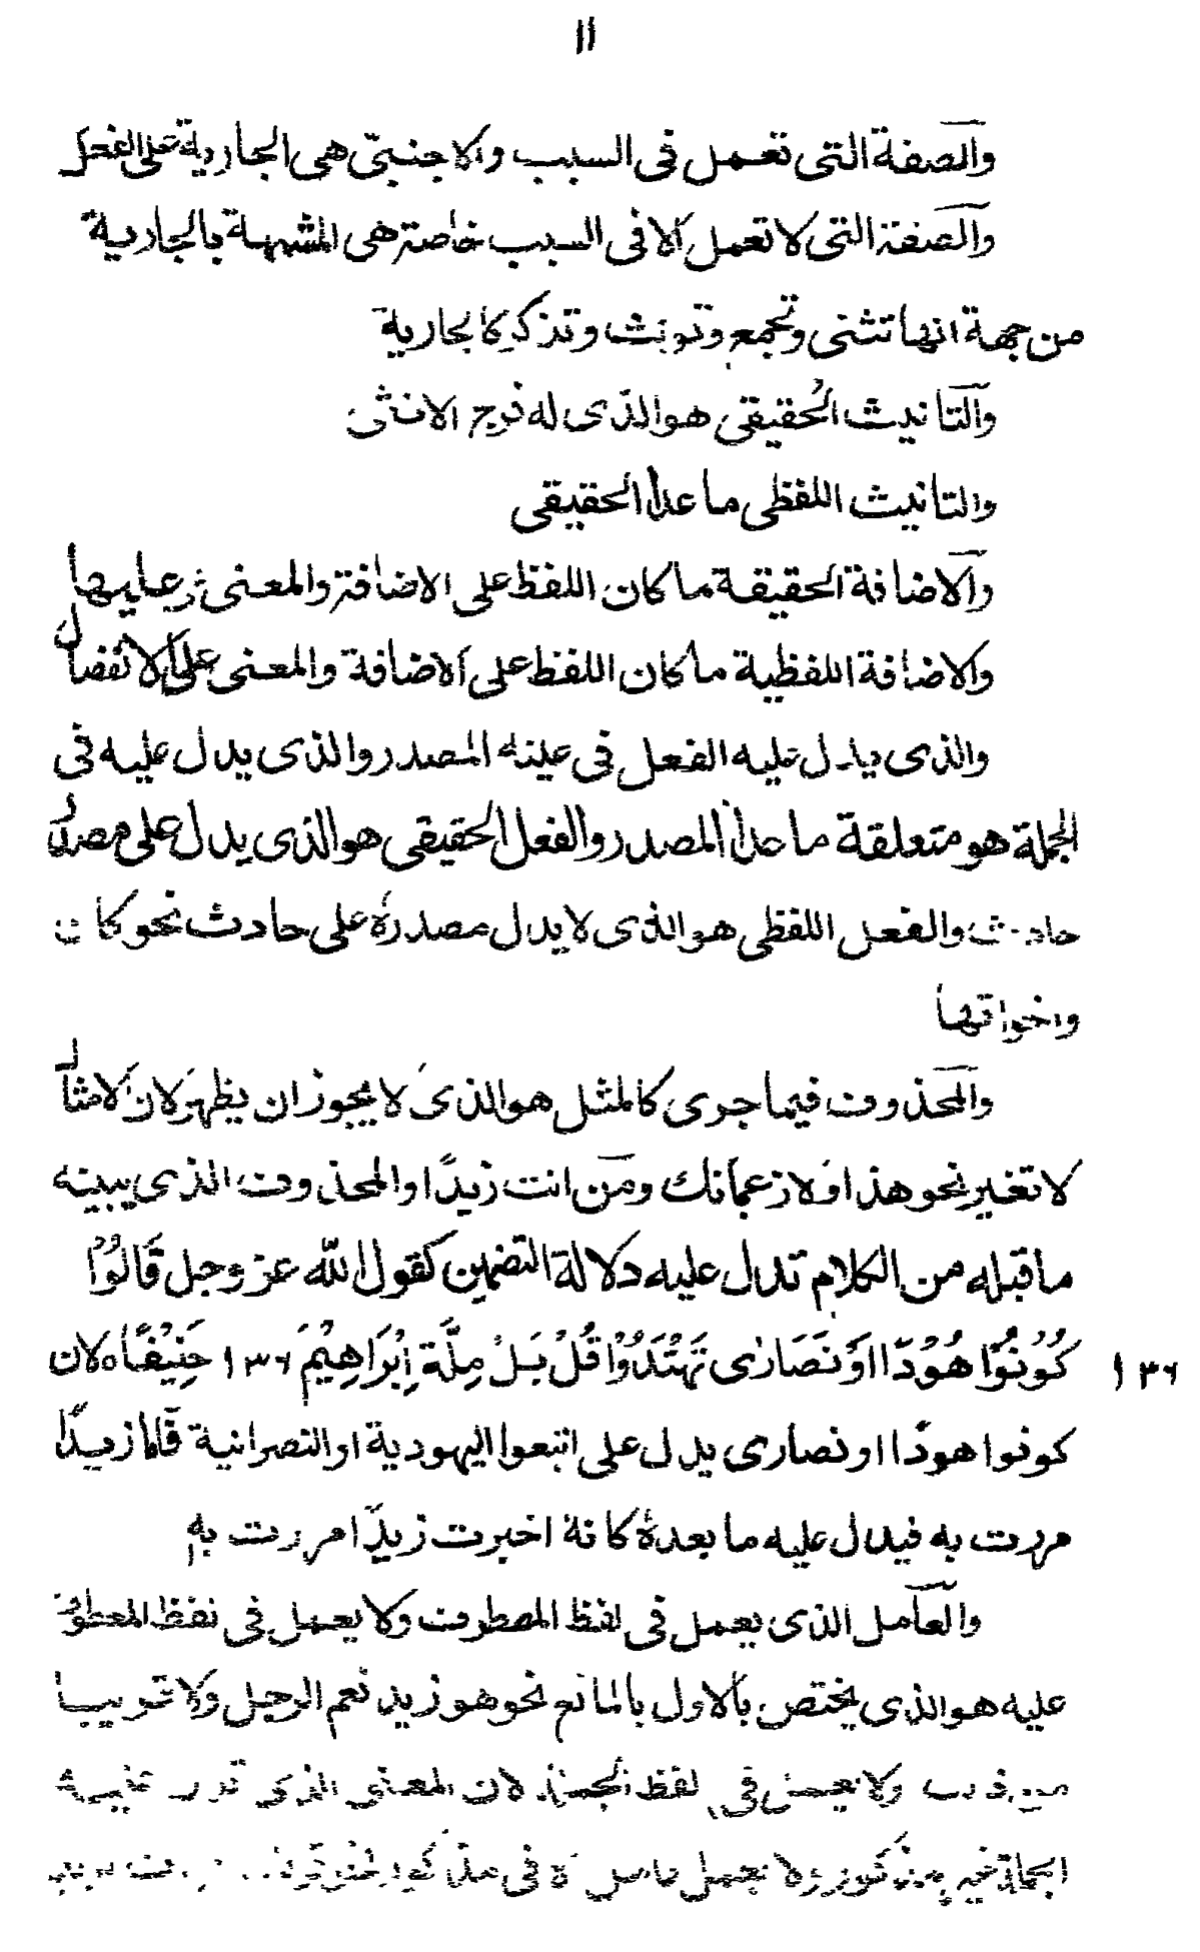 ١١
والصفة التى تعمل فى السبب والاجنبىّ هى الجارية على الفعل
والصفة التى لا تعمل الا فى السبب خاصة هى المشبهة بالجارية
من جهة انها تثنى وتجمع وتونث وتذكر كالجارية
والتانيث الحقيقى هو الذى له فرج الانثى
والتانيث اللفظى ما عدا الحقيقى
والاضافة الحقيقة ما كان اللفظ على الاضافة والمعنى عليها
والاضافة اللفظية ما كان اللفظ على الاضافة والمعنى على الانفصال
والذى يدل عليه الفعل فى عينه المصدر والذى يدل عليه فى
الجملة هو متعلقة ما عدا المصدر والفعل الحقيقى هو الذى يدل على مصدر
حادث والفعل اللفظى هو الذى لا يدل مصدره على حادث نحو كان
واخواتها
والمحذوف فيما جرى كالمثل هو الذى لا يجوز ان يظهر لان الامثال
لا تغير نحو هذا ولا زعماتك ومن انت زيدًا والمحذوف الذى يبينه
ما قبله من الكلام تدل عليه دلالة التضمين كقول الله عز وجل قَالُوْا
كُوْنُوْا هُوْدًا اَوْ نَصَارٰى تَهْتَدُوْا قُلْ بَلْ مِلَّةَ اِبْرَاهِيْمَ ١٣٦ حَنِيْفًا ه لان
١٣٦
كونوا هودًا او نصارى يدل على اتبعوا اليهودية او النصرانية فاما زيدًا
مررت به فيدل عليه ما بعده كانه اخبرت زيدًا مررت به
والعامل الذى يعمل فى لفظ المعطوف ولا يعمل فى لفظ المعطوف
عليه هو الذى يختص بالاول بالمانع نحو هو زيد نعم الرجل ولا قريبا
ولا يعمل فى لفظ الجملة لان المعنى الذى
الجملة غير مذكور ولا يعمل فى